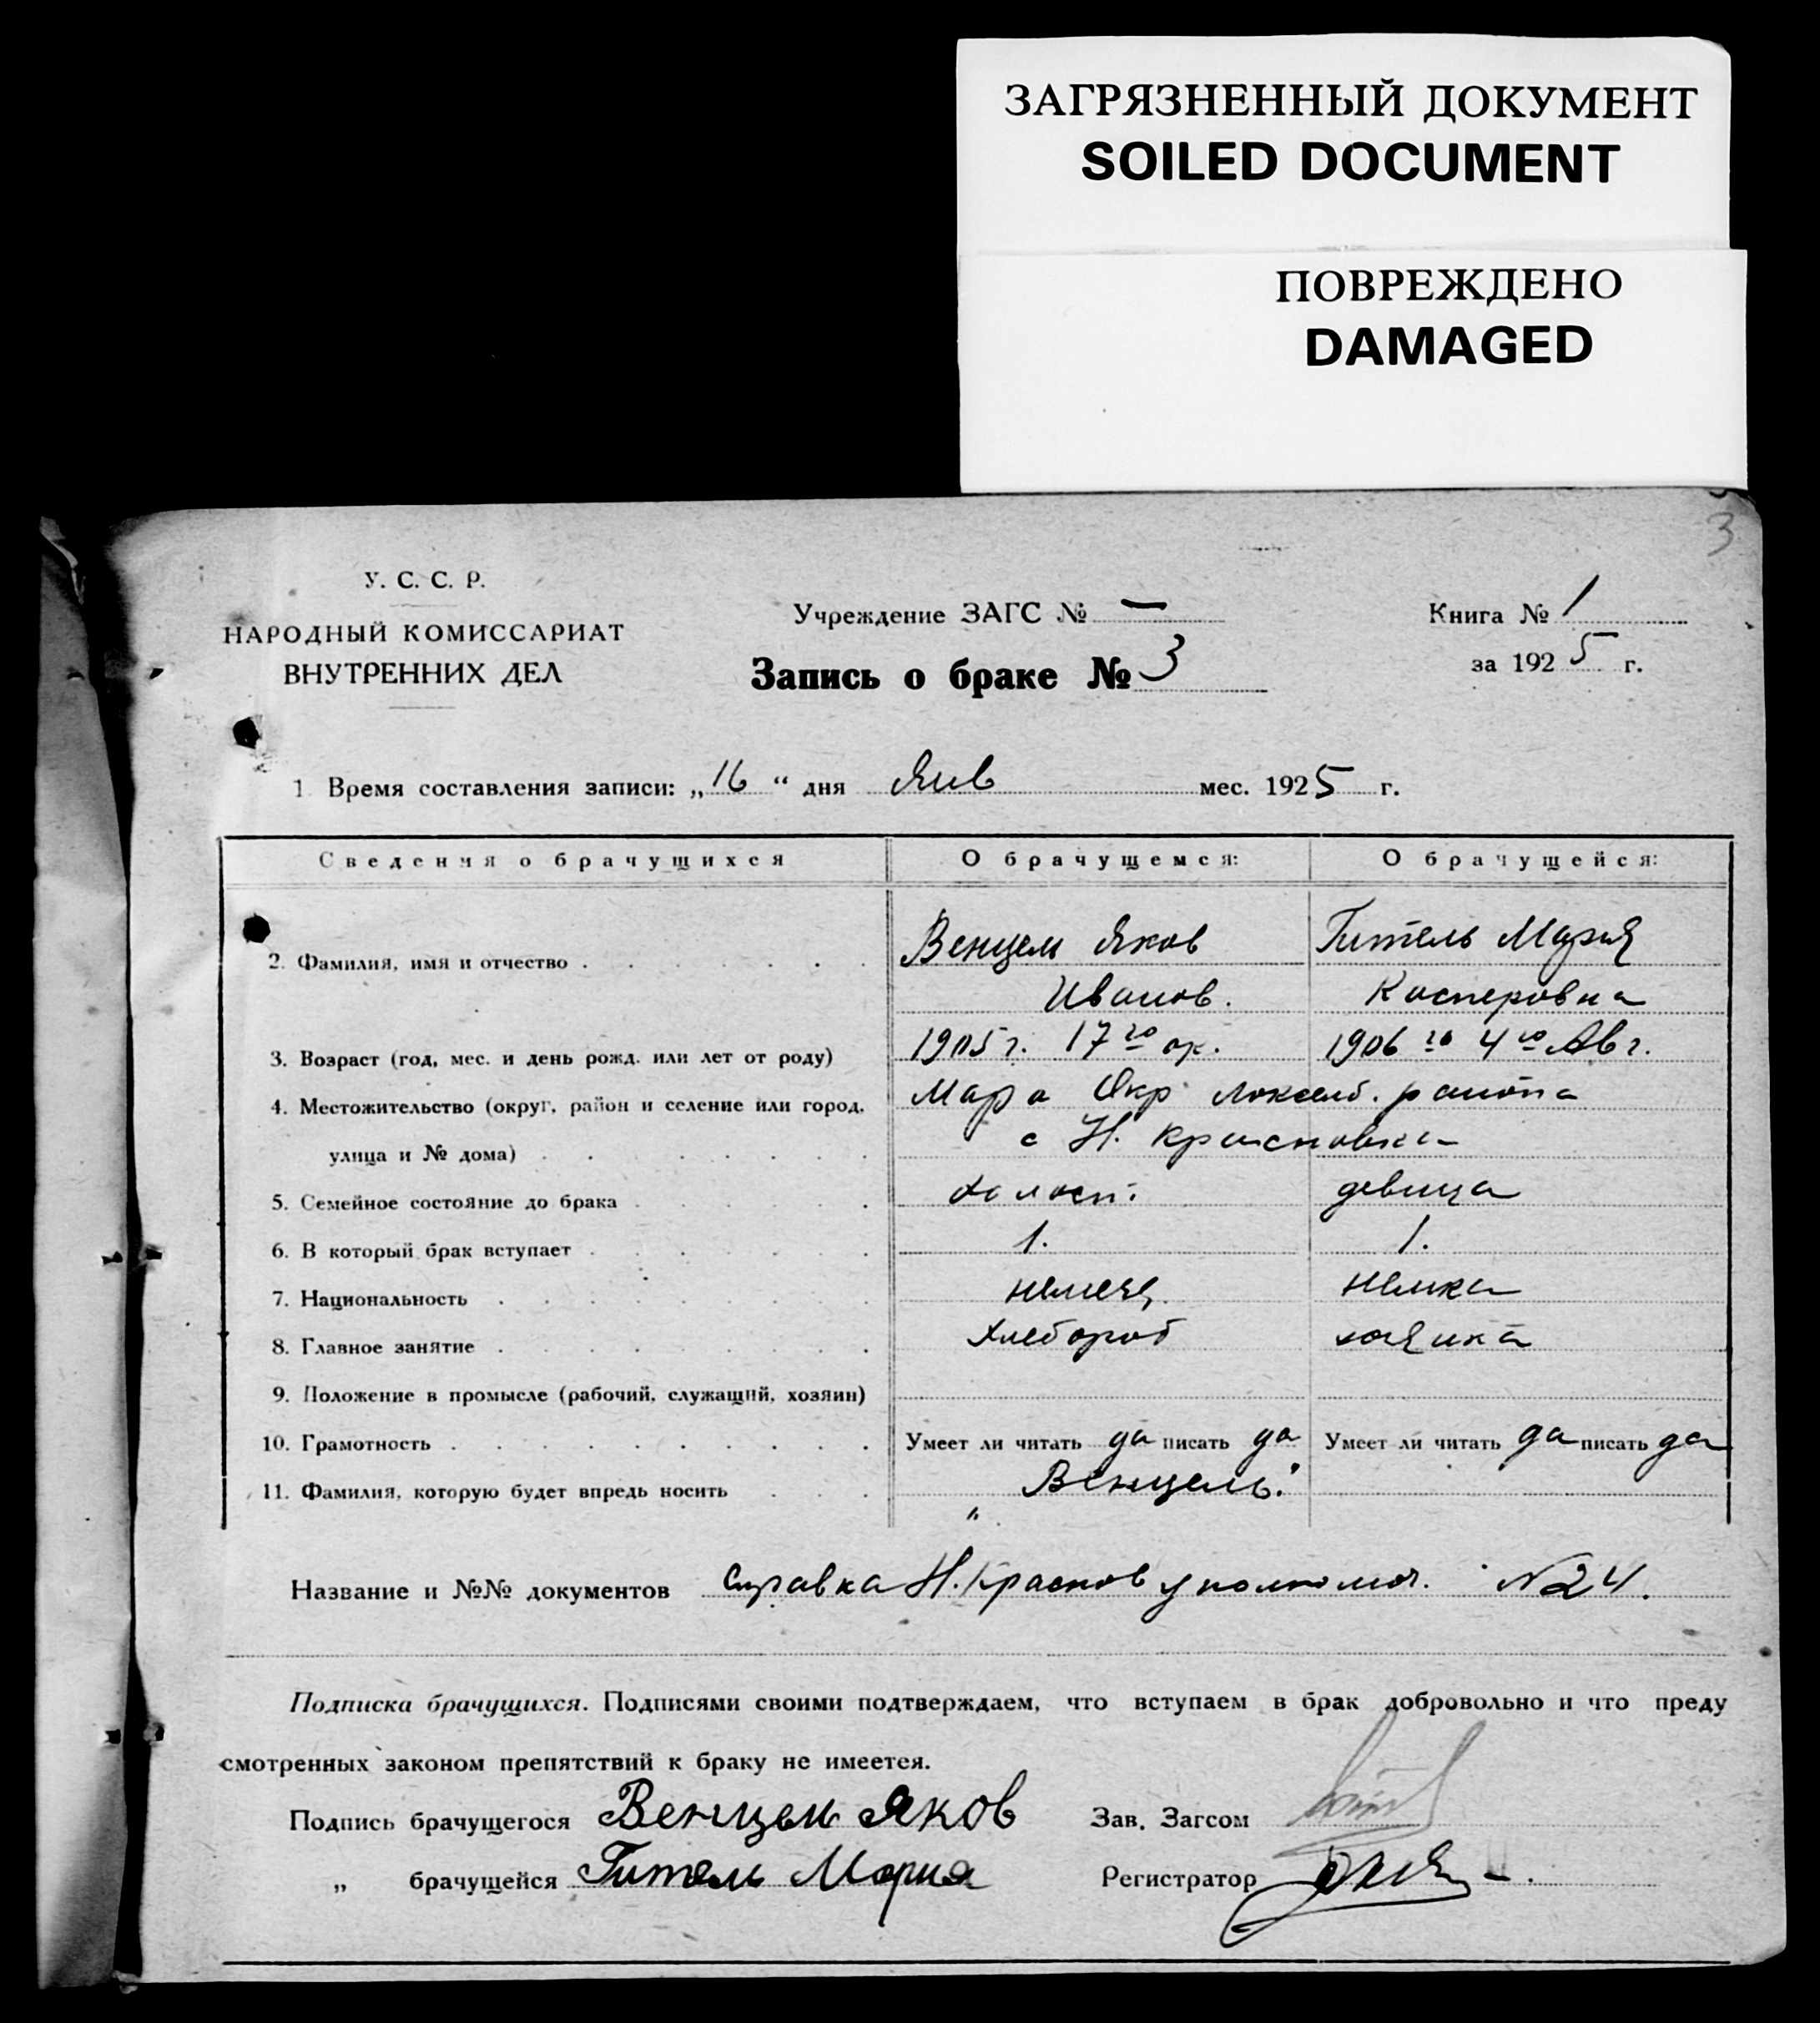 ЗАГРЯЗНЕННЫЙ ДОКУМЕНТ
SOILED DOCUMENT
ПОВРЕЖДЕНО
DAMAGED
3
У. С. С. Р.
НАРОДНЫЙ КОМИССАРИАТ
ВНУТРЕННИХ ДЕЛ
Учреждение ЗАГС № —
Запись о браке № 3
Книга № 1
за 1925 г.
1. Время составления записи: „16“ дня Янв мес. 1925 г.
Сведения о брачущихся О брачущемся: О брачущейся:
2. Фамилия, имя и отчество Венцель Яков Гитель Мария
Иванов. Касперовна
3. Возраст (год, мес. и день рожд. или лет от роду) 1905 г. 17го 1906 го 4го Авг.
4. Местожительство (округ, район и селение или город, Мар Окр района
улица и № дома) с Н. Красновка
5. Семейное состояние до брака холост. девица
6. В который брак вступает 1. 1.
7. Национальность немец. немка
8. Главное занятие хлебороб
9. Положение в промысле (рабочий, служащий, хозяин)
10. Грамотность Умеет ли читать да писать да Умеет ли читать да писать да
11. Фамилия, которую будет впредь носить „Венцель“
Название и №№ документов Справка Н. Краснов уполномоч. №24.
Подписка брачущихся. Подписями своими подтверждаем, что вступаем в брак добровольно и что преду
смотренных законом препятствий к браку не имеетея.
Подпись брачущегося Венцель Яков Зав. Загсом
„ брачущейся Гитель Мария Регистратор